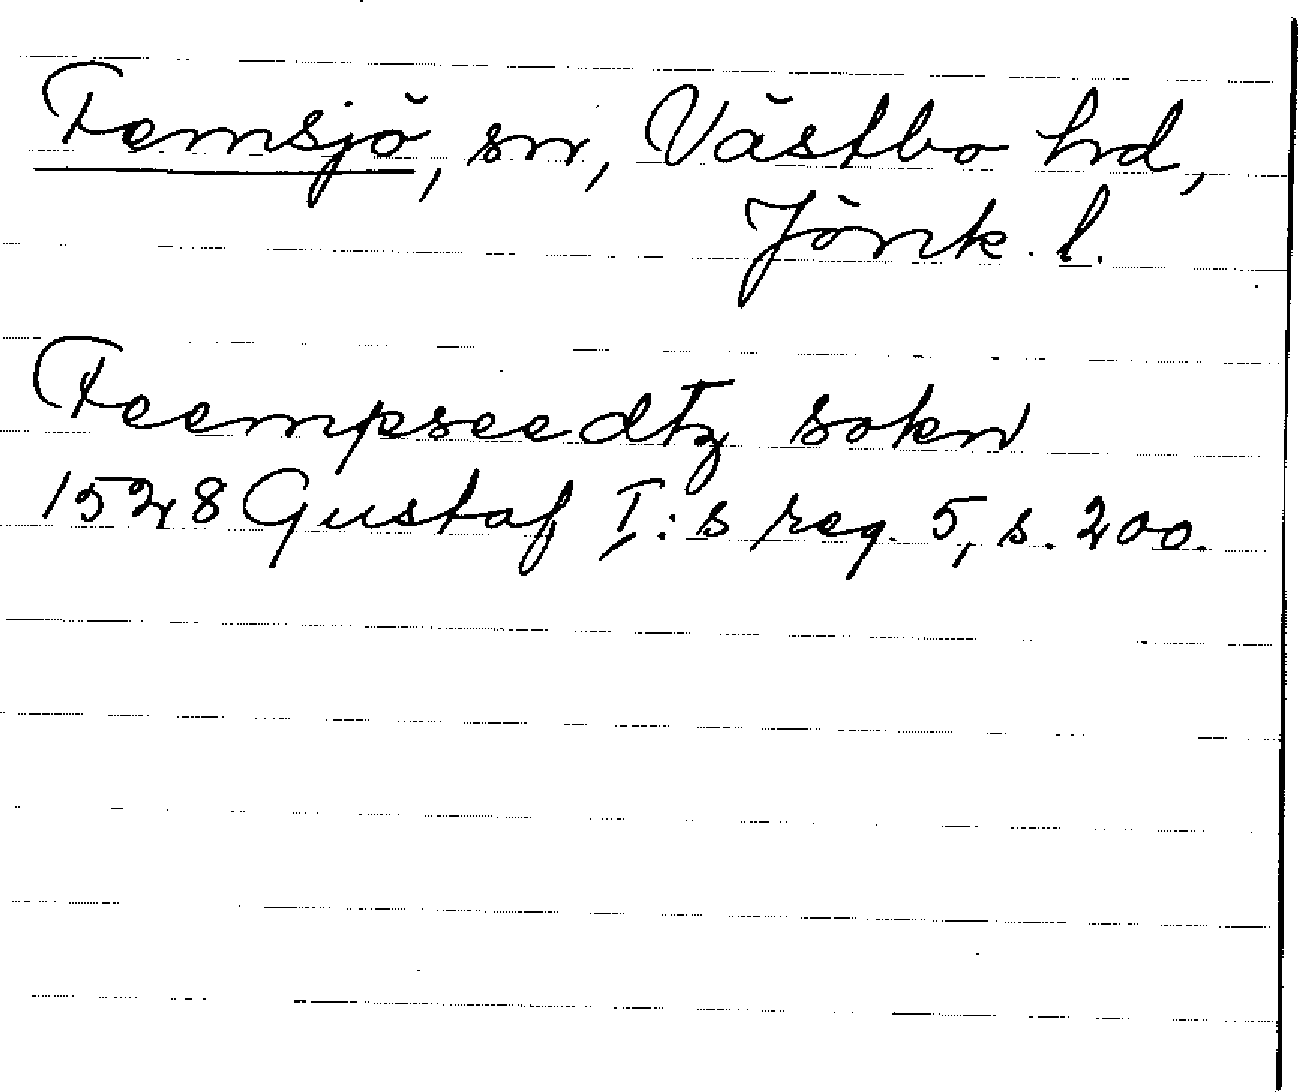 Femsjö, sn, Västbo hd,
Jönk. l.
Feempseedtz sokn
1528 Gustaf I:s reg. 5, s. 200.